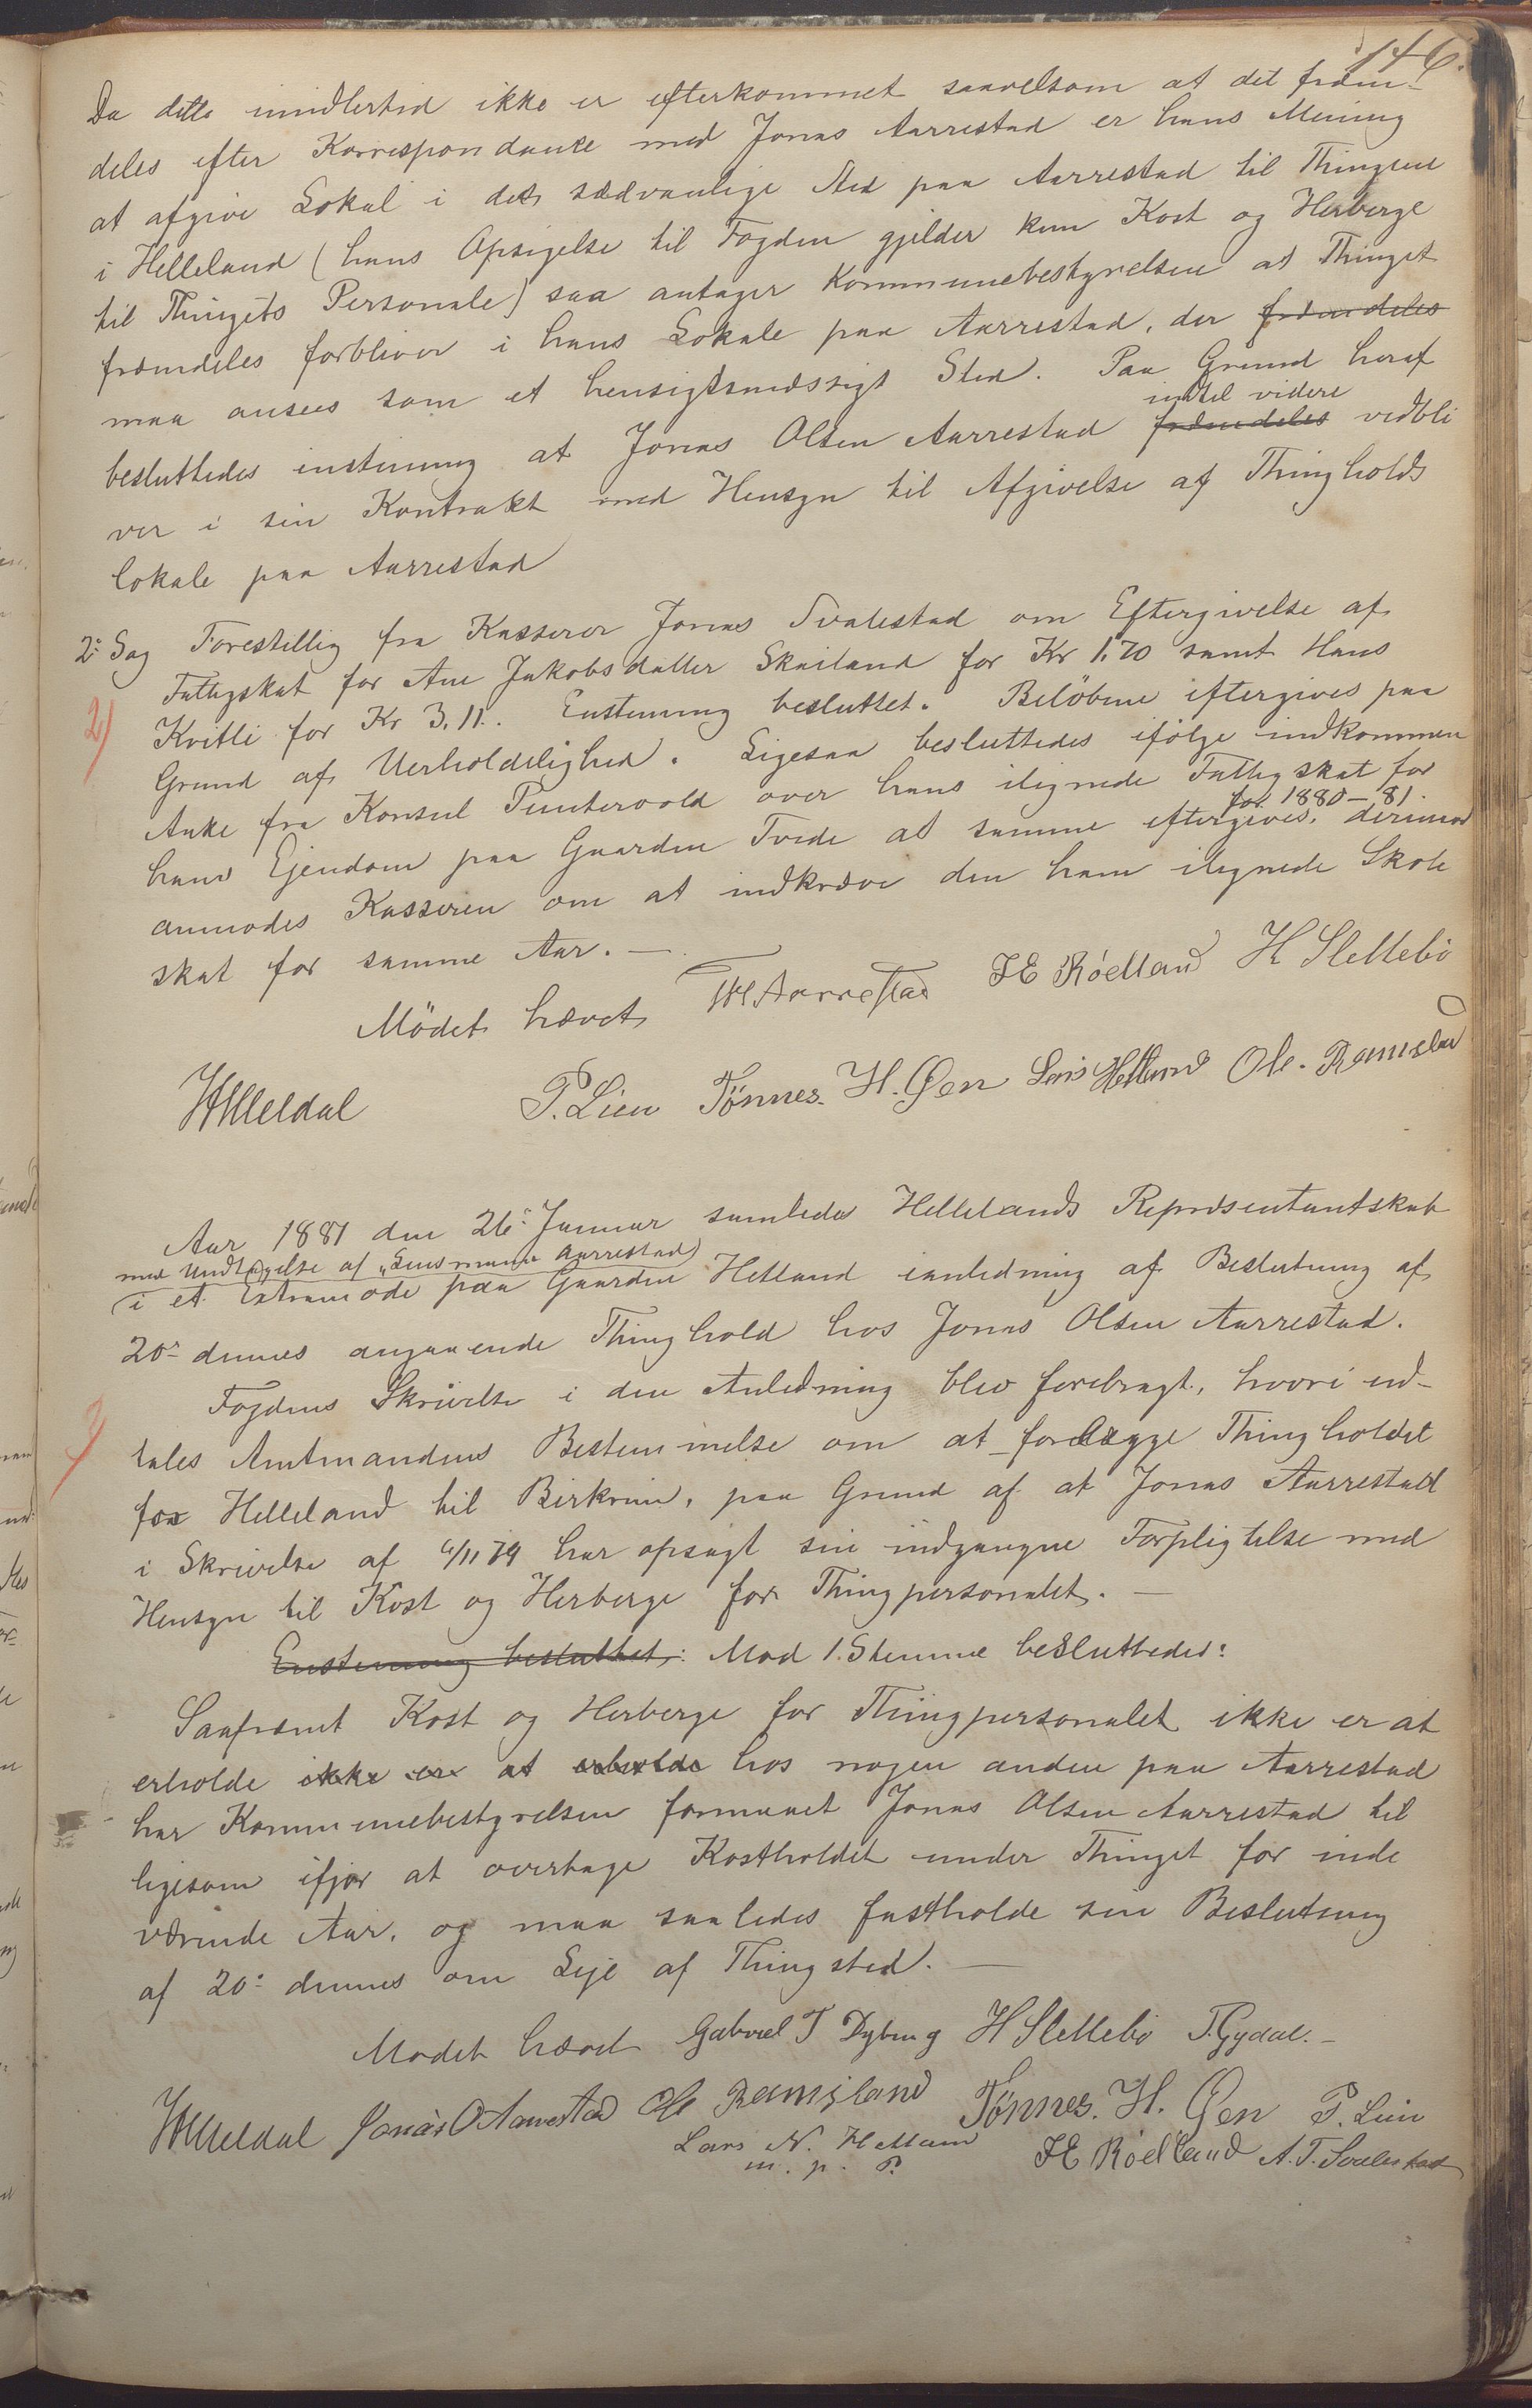 146.
Da dette imidlertid ikke er efterkommet saavelsom at det frem-
deles efter Korrespondance med Jonas Aarrestad er hans Mening
at afgive Lokal i det sædvanlige Sted paa Aarrestad til Thingene
i Helleland (hans Opsigelse til Fogden gjelder kun Kost og Herberge
til Thingets Personale) saa antager Kommunebestyrelsen at Thinget
fremdeles forbliver i hans Lokale paa Aarrestad, der fremdeles
maa ansees som et hensigtsmæssigt Sted. Paa Grund heraf
indtil videre
besluttedes enstemmig at Jonas Olsen Aarrestad fremdeles vedbli
ver i sin Kontrakt med Hensyn til Afgivelse af Thingholds
lokale paa Aarrestad
2: Sag Forestillig fra Kasserer Jonas Svalestad om Eftergivelse af
Fattigskat for Ane Jakobsdatter Skailand for Kr 1.70 samt Hans
2)
Kvitli for Kr 3,11. Enstemmig besluttet. Beløbene eftergives paa
Grund af Uerholdelighed. Ligesaa besluttedes ifølge indkommen
Anke fra Konsul Puntervold over hans ilignede Fattigskat for
for 1880-81.
hans Ejendom paa Gaarden Tvede at samme eftergives, derimod
anmodes Kassereren om at indkræve den ham ilignede Skole
skat for samme Aar. —
Mødet hævet TH Aarrestad JE Röedland H Slettebø
P. Lien Tønnes. H. Øen Lars Hetland Ole. Ramsland
Aar 1881 den 26: Januar samledes Hellelands Repræsentantskab
med Undtagelse af "Lensmand Aarrestad)
(i et Extramøde paa Gaarden Hetland ianledning af Beslutning af
20: dennes angaaende Thinghold hos Jonas Olsen Aarrestad.
Fogdens Skrivelse i den Anledning blev forebragt, hvori ud-
tales Amtmandens Bestemmelse om at forlægge Thingholdet
for Helleland til Birkrem, paa Grund af at Jonas Aarrestad
i Skrivelse af 4/11 79 har opsagt sin indgangne Forpligtelse med
Hensyn til Kost og Herberge for Thingpersonalet. —
Enstemmig besluttet: Mod 1 Stemme besluttedes:
Saafremt Kost og Herberge for Thingpersonalet ikke er at
erholde ikke er at erholde hos nogen anden paa Aarrestad
har Kommunebestyrelsen formaaet Jonas Olsen Aarrestad til
ligesom ifjor at overtage Kostholdet under Thinget for inde
værende Aar, og maa saaledes fastholde sin Beslutning
af 20: dennes om Leje af Thingsted. —
Mødet hævet Gabriel T Dybing H Slettebø T. Gydal. -
Jonas O Aarrestad Ole Ramsland Tønnes. H. Øen P. Lien
Lars N. Hetland JE Röedland A. T. Svalestad
m. p. P.